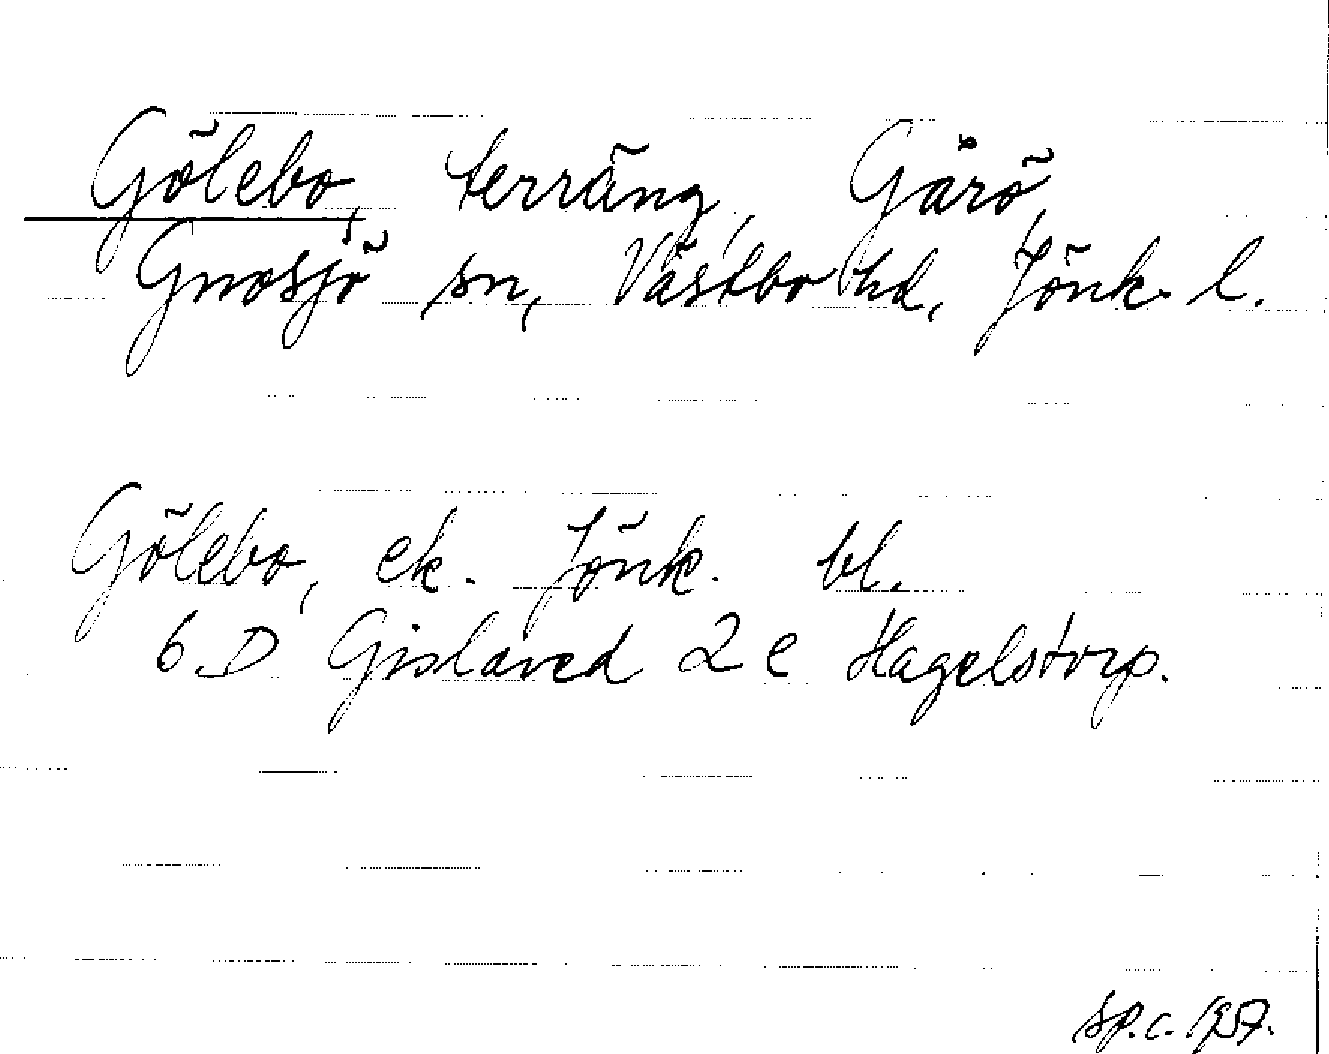 Gölebo, terräng, Gårö,
Gnosjö sn, Västbo hd, Jönk. l.
Gölebo, ek. Jönk. bl.
6 D Gislaved 2 e Hagelstorp.
Sp.c. 1957.